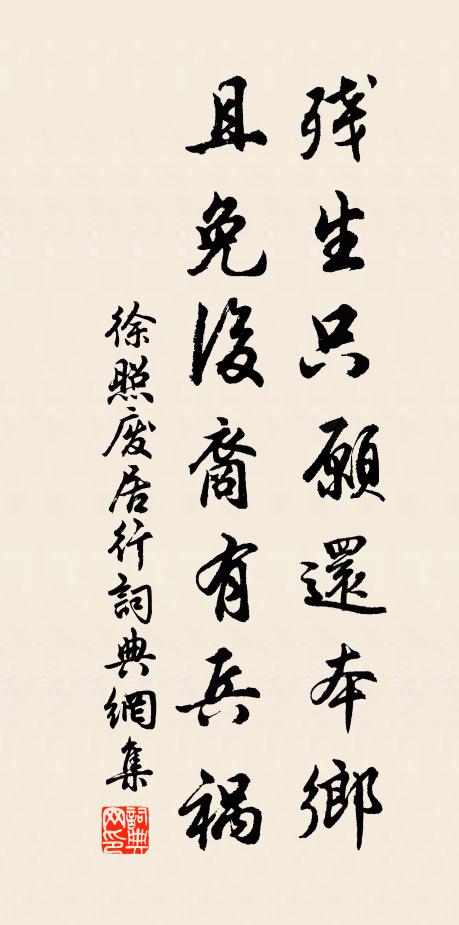 残生只願還本鄉
且免後裔有兵禍
徐照廢居行詞典網集
詞典网印